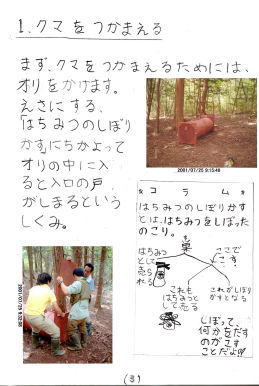 1. クマをつかまえる
まず、クマをつかまえるためには、
オリをかけます。
えさにする、
「はちみつのしぼり
かす」にちかよって
オリの中に入
ると入口の戸
がしまるという
しくみ。
2001/07/25 9:15:48
*コラム*
はちみつのしぼりかす
とは、はちみつをしぼった
のこり。
巣
はちみつ
として
売ら
れる
ここで
こす。
これも
はちみつと
して売る
これがしぼり
かすとなる
しぼって、
何かをだす
のがこす
ことだよ!!
(3)